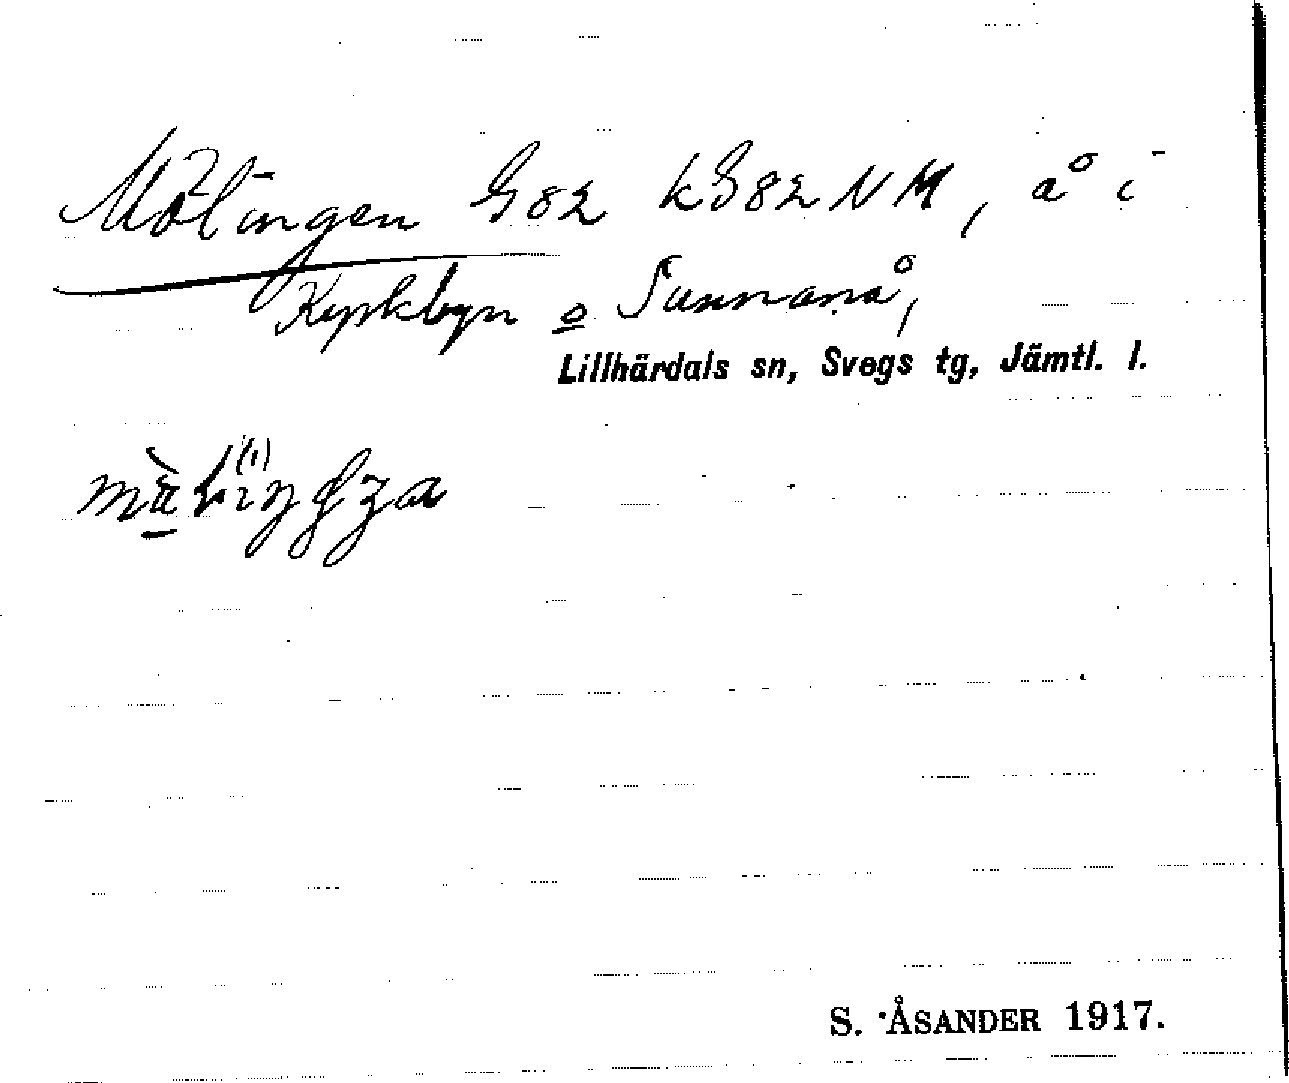 Mölingen G82 kG82NM, å i
Kyrkbyn o Sunnanå,
Lillhärdals sn, Svegs tg, Jämtl. l.
S. ÅSANDER 1917.